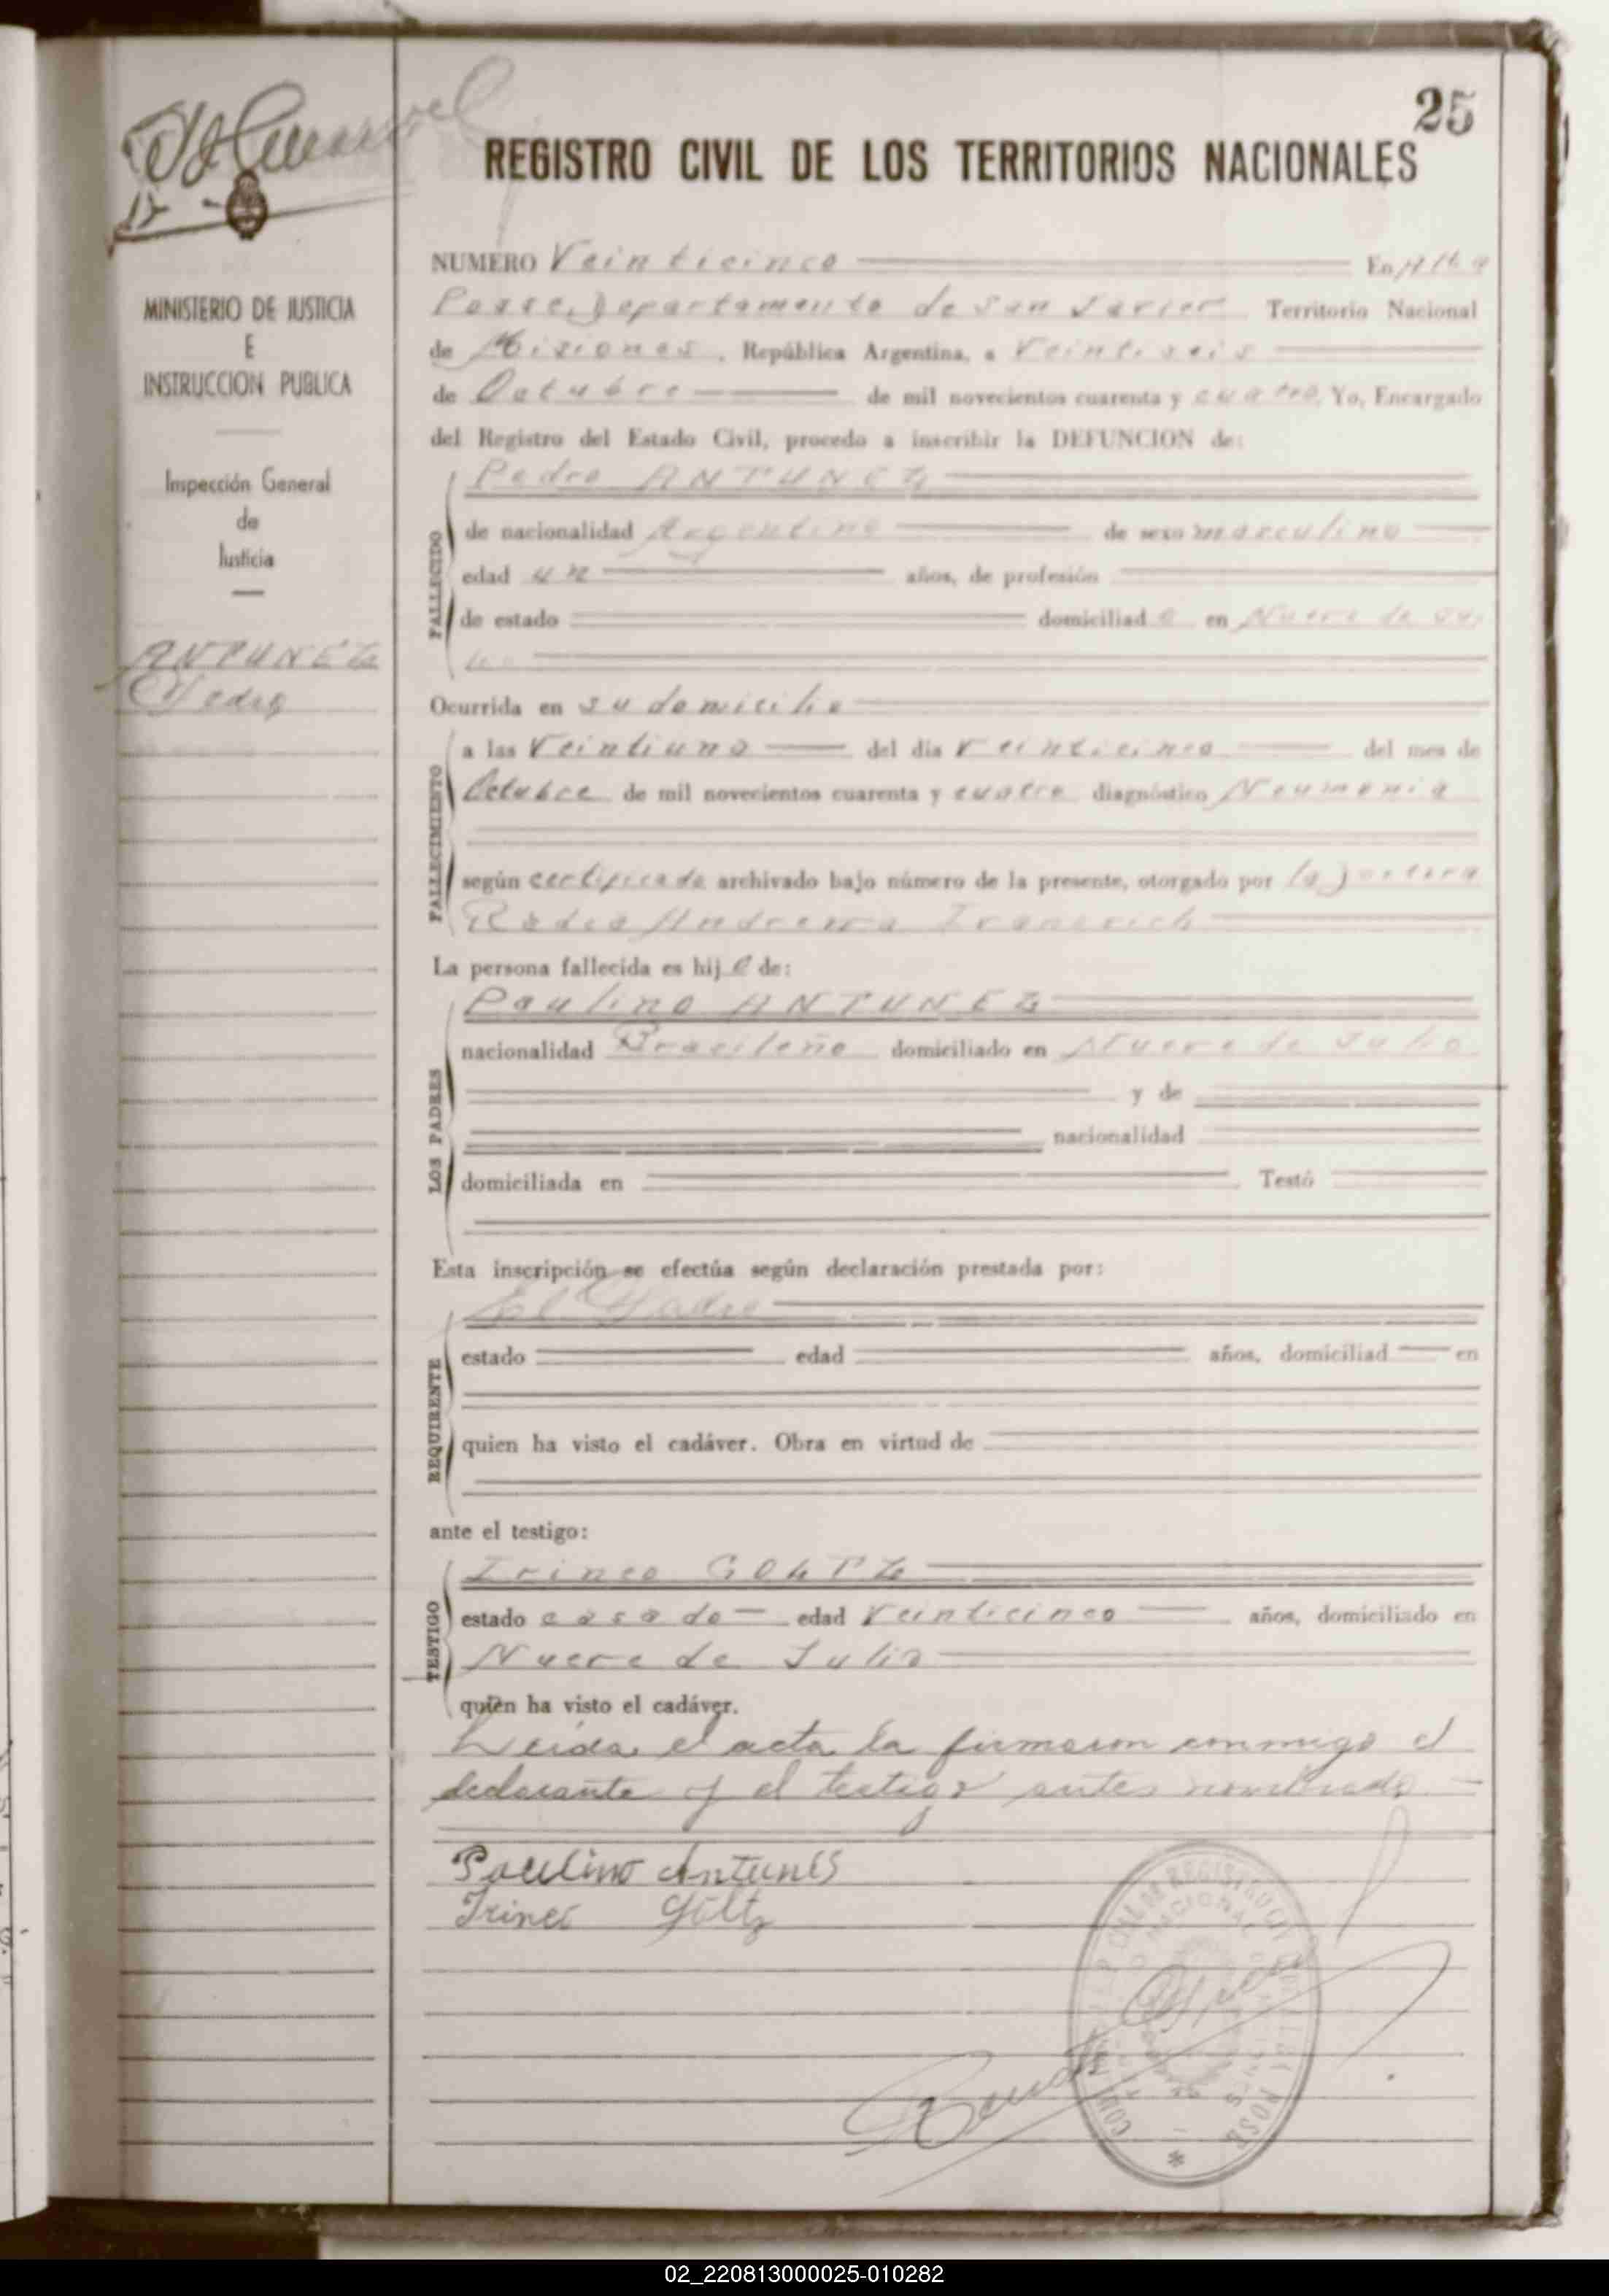 25
REGISTRO CIVIL DE LOS TERRITORIOS NACIONALES
MINISTERIO DE JUSTICIA
E
INSTRUCCION PUBLICA
Inspección General
de
Justicia
ANTUNEZ
Pedro
NUMERO Veinticinco En Alba
Posse, Departamento de San Javier Territorio Nacional
de Misiones, República Argentina, a Veintiseis
de Octubre de mil novecientos cuarenta y cuatro Yo, Encargado
del Registro del Estado Civil, procedo a inscribir la DEFUNCION de:
Pedro ANTUNEZ
FALLECIDO
de nacionalidad Argentino de sexo masculino
edad un años, de profesión
de estado domiciliado en Nueve de Ju
lio
Ocurrida en su domicilio
FALLECIMIENTO
a las Veintiuna del día Veinticinco del mes de
Octubre de mil novecientos cuarenta y cuatro diagnóstico Neumonia
según certificado archivado bajo número de la presente, otorgado por la Doctora
La persona fallecida es hijo de:
LOS PADRES
Paulino ANTUNEZ
nacionalidad Brasileño domiciliado en Nueve de Julio
y de
nacionalidad
domiciliada en Testó
Esta inscripción se efectúa según declaración prestada por:
REQUIRENTE
El Padre
estado edad años, domiciliad en
quien ha visto el cadáver. Obra en virtud de
ante el testigo:
TESTIGO
Irineo GOLTZ
estado casado edad Veinticinco años, domiciliado en
Nueve de Julio
quien ha visto el cadáver.
Leida el acta la firmaron conmigo el
declarante y el testigo antes nombrado
Paulino Antunes
Irineo Goltz
02_220813000025-010282